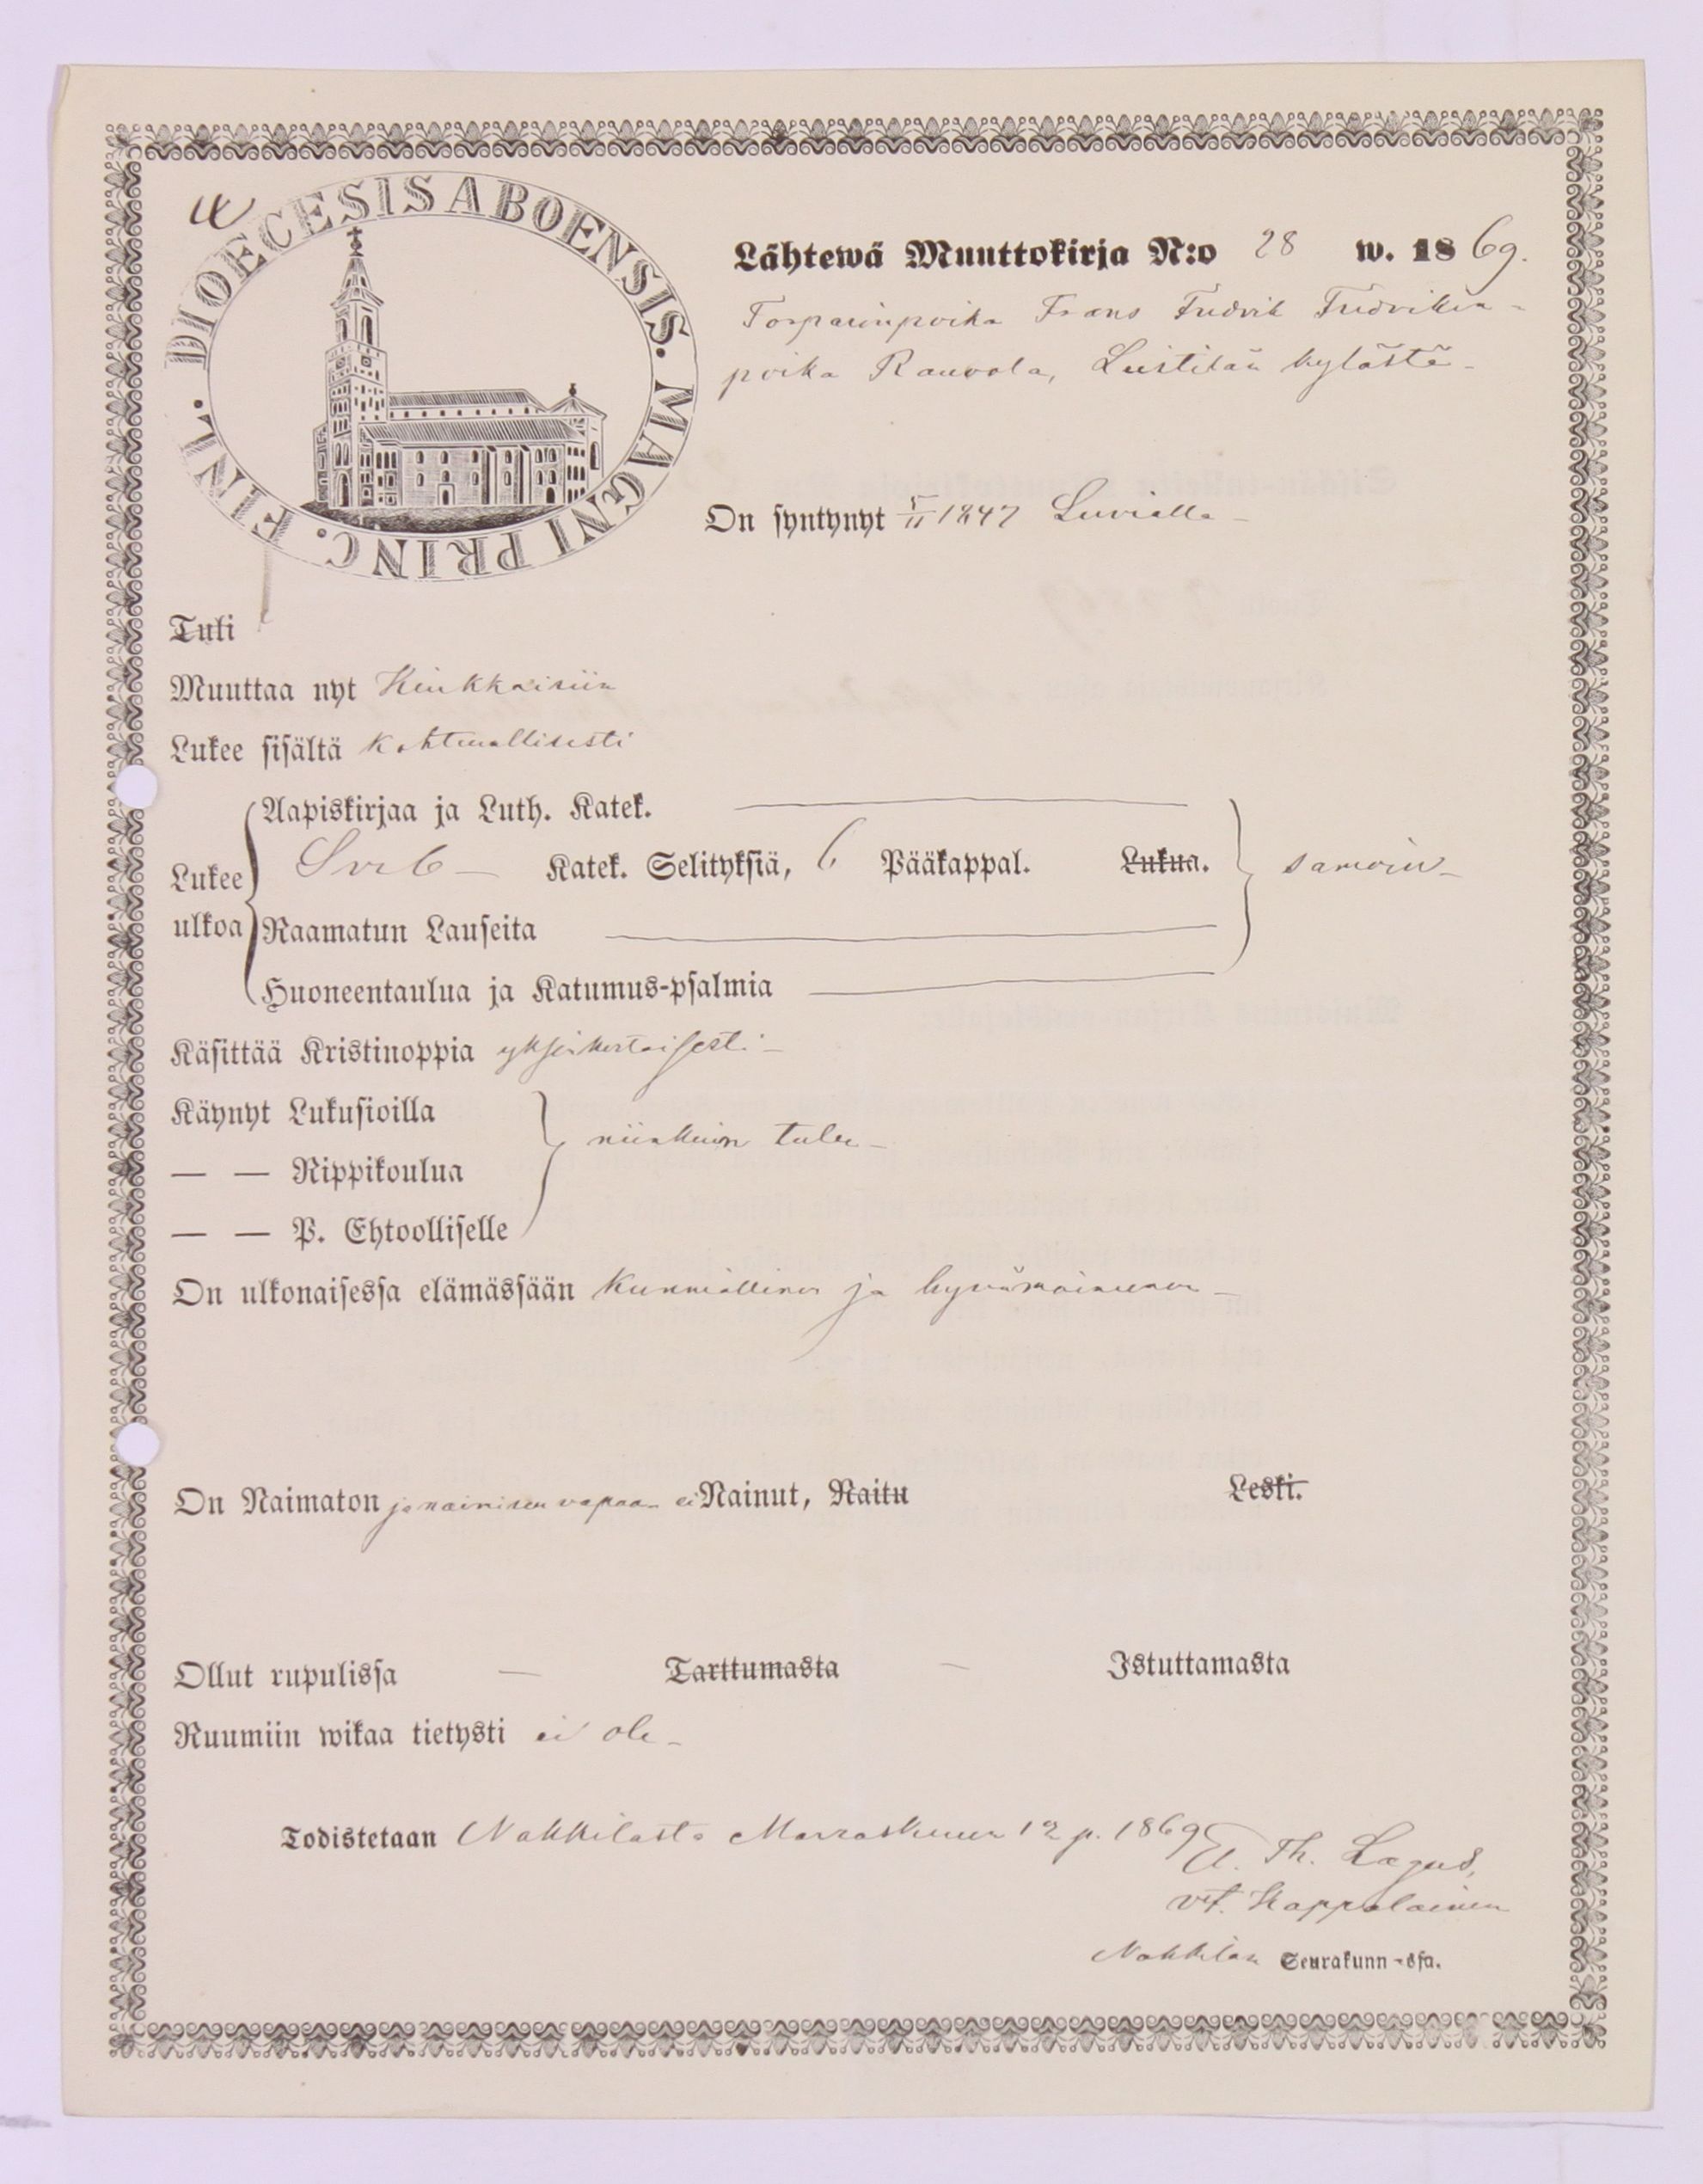 DIOECESIS ABOENSIS. MAGNI PRINC. FINL.
Lähtewä Muuttokirja N:o 28 w. 1869.
Torparinpoika Frans Fredrik Fredrikin-
poika Rauvola, Leistilän kylästä-
On syntynyt 5/11 1847 Luvialla-
Tuli
Muuttaa nyt Kiukkaisiin
Lukee sisältä kohtuullisesti
Aapiskirjaa ja Luth. Katek.
Lukee Katek. Selityksiä, 6 Pääkappal. Lukua. samoin-
ulkoa Raamatun Lauseita
Huoneentaulua ja Katumus-psalmia
Käsittää Kristinoppia yksinkertaisesti-
Käynyt Lukusioilla
niinkuin tulee-
— — Rippikoulua
— — P. Ehtoolliselle
On ulkonaisessa elämässään kunniallinen ja hyvämaineinen-
On Naimaton ja naimiseen vapaa ei Nainut, Naitu Leski.
Ollut rupulissa — Tarttumasta — Istuttamasta
Ruumiin wikaa tietysti ei ole-
Todistetaan Nakkilasta Marraskuun 12 p. 1869
Th. Lagus,
vt. Kappalainen
Nakkilan Seurakunn-ssa.